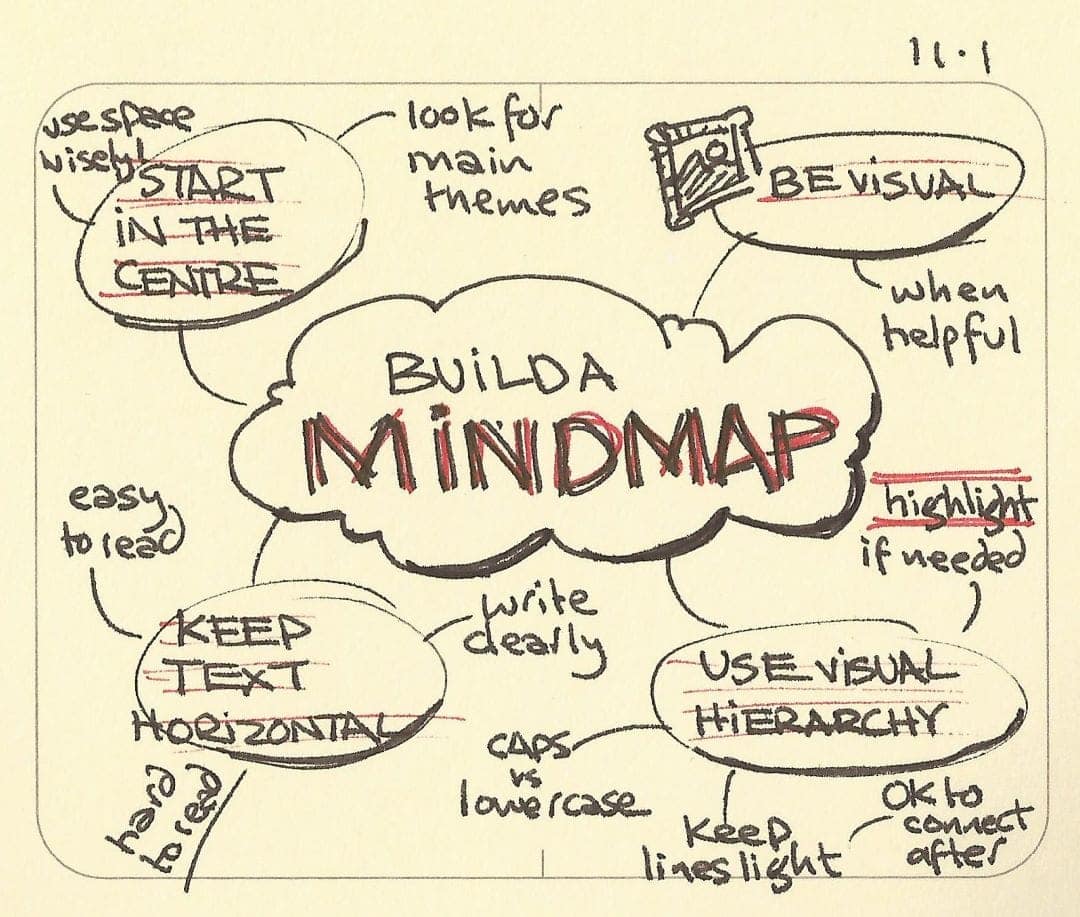 11.1
use space
wisely!
START
iN THE
CENTRE
look for
main
themes
BE ViSUAL
when
helpful
BUiLD A
MiNDMAP
easy
to read
KEEP
TEXT
HORiZONTAL
hard
to read
write
clearly
highlight
if needed
USE ViSUAL
HiERARCHY
CAPS
vs
lowercase
Keep
lines light
OK to
connect
after